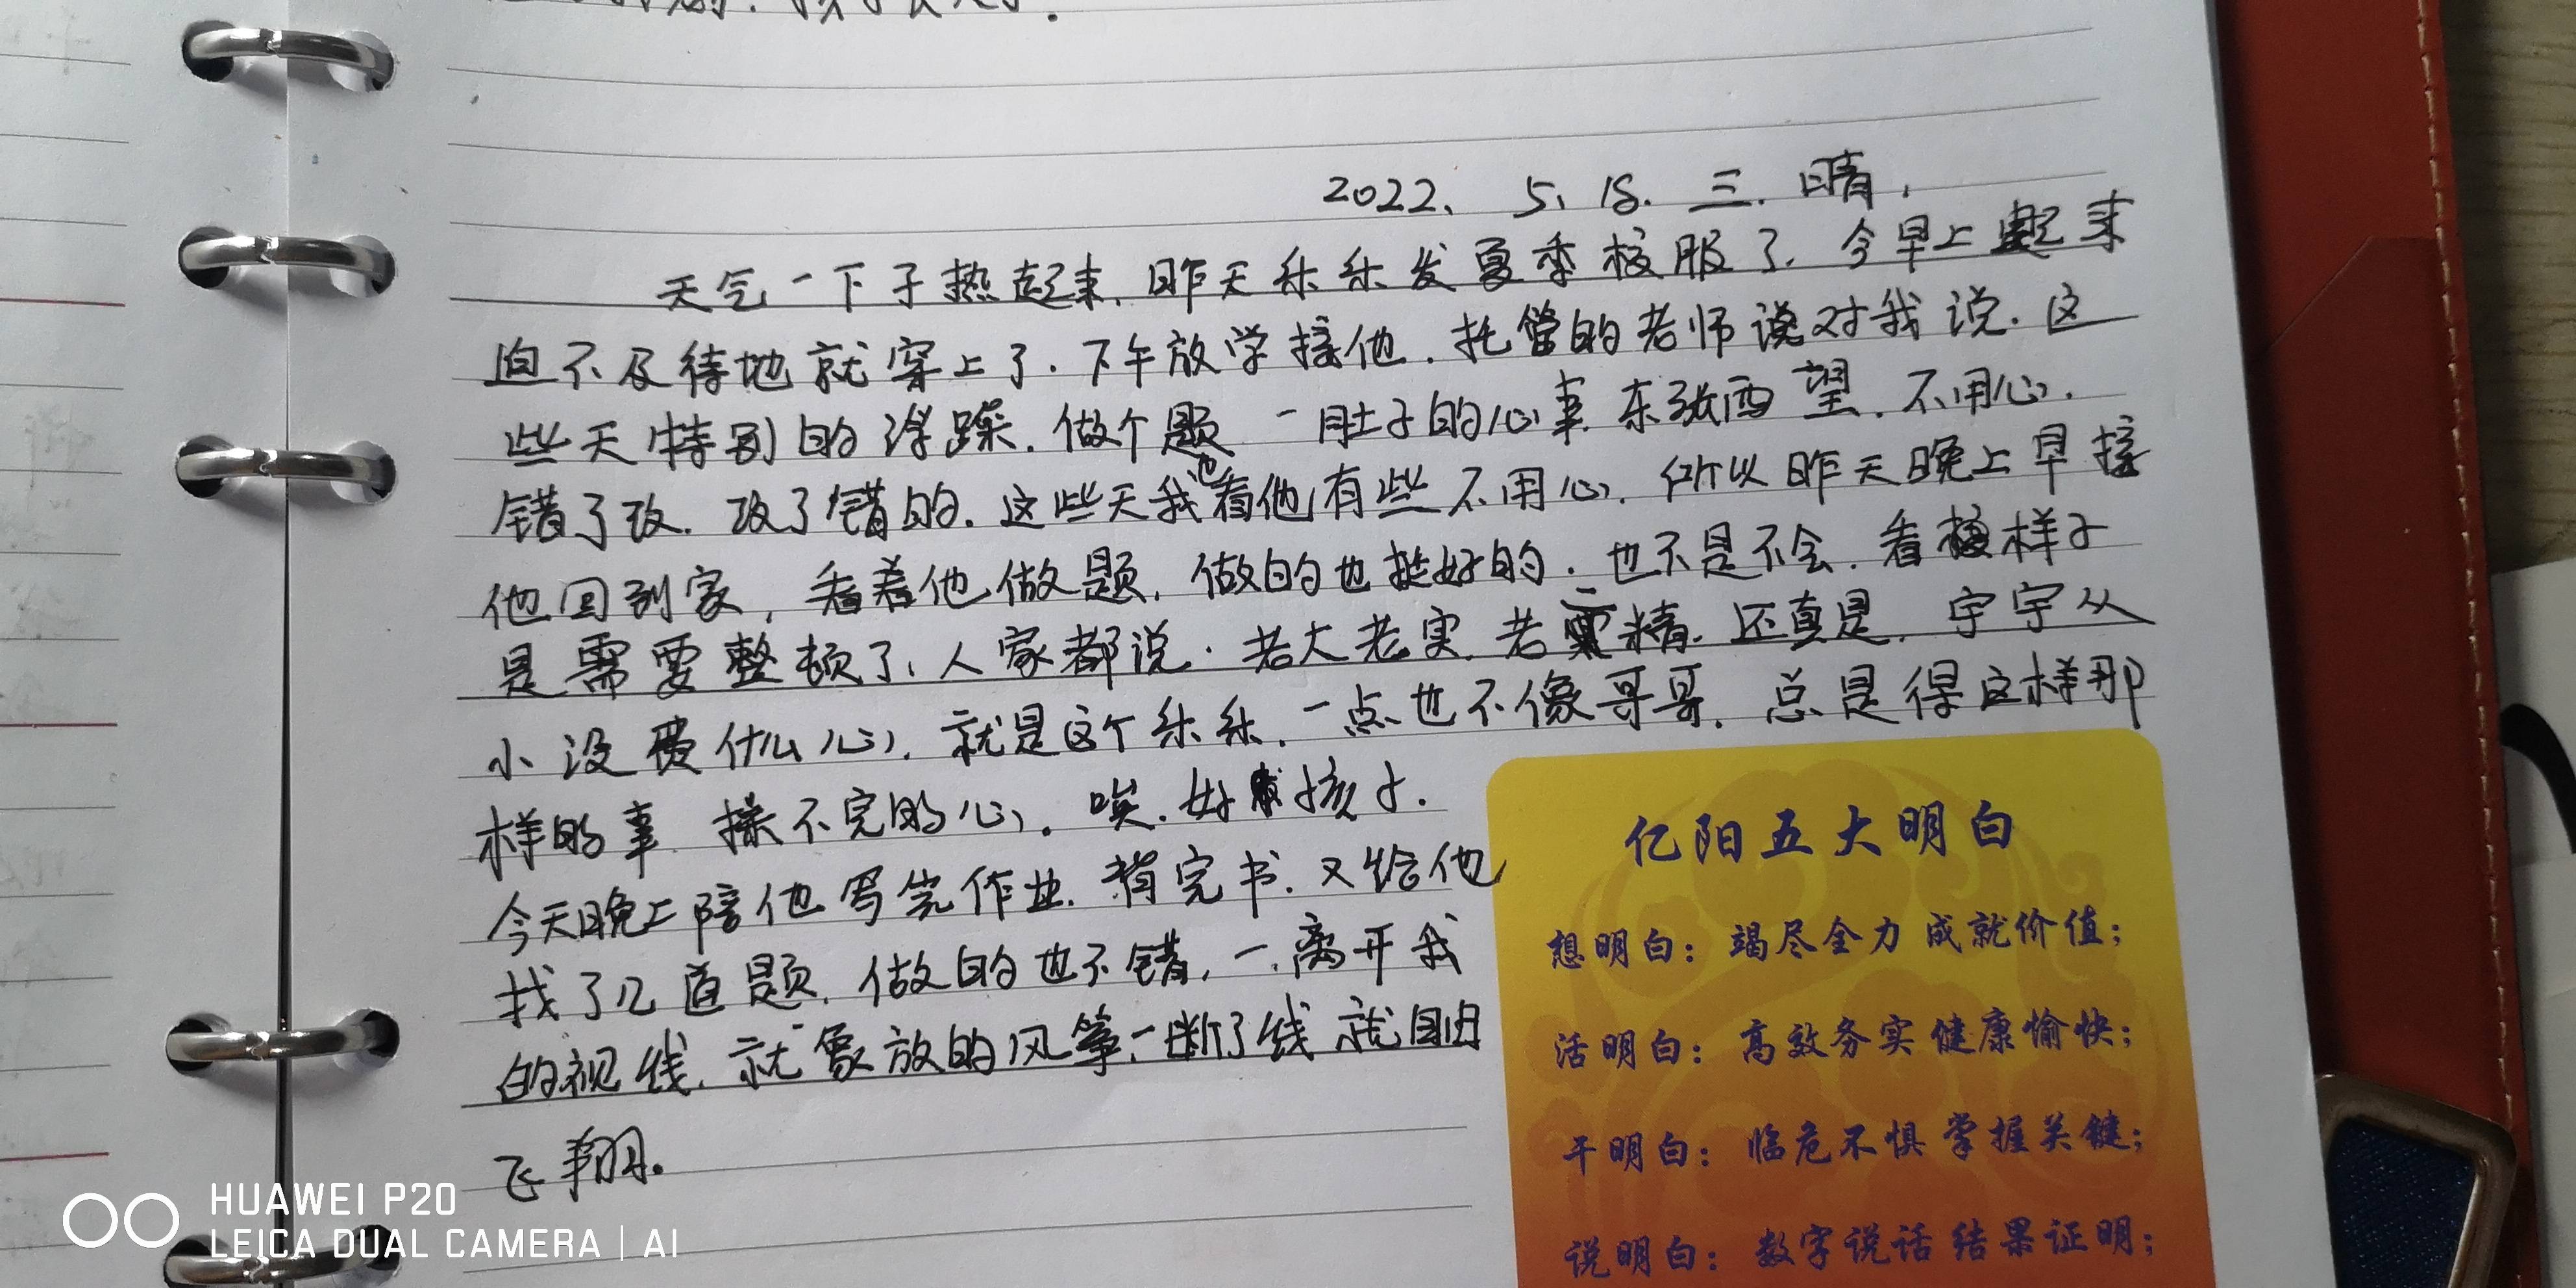 2022、5、18. 三. 晴.
天气一下子热起来, 昨天乐乐发夏季校服了. 今早上起来
迫不及待地就穿上了. 下午放学接他. 托管的老师对我说. 这
些天特别的浮躁. 做个题 一肚子的心事. 东张西望. 不用心.
错了改. 改了错的. 这些天我也看他有些不用心. 所以昨天晚上早接
他回到家, 看着他做题. 做的也挺好的. 也不是不会. 看样子
是需要整顿了. 人家都说. 老大老实. 老二精. 还真是. 宇宇从
小没费什么心. 就是这个乐乐. 一点也不像哥哥. 总是得这样那
样的事 操不完的心. 唉. 好孩子.
今天晚上陪他写完作业. 背完书. 又给他
找了几道题. 做的也不错. 一离开我
的视线. 就象放的风筝. 一断了线 就
飞翔.
亿阳五大明白
想明白: 竭尽全力 成就价值;
活明白: 高效务实 健康愉快;
干明白: 临危不惧 掌握关键;
说明白: 数字说话 结果证明;
HUAWEI P20
LEICA DUAL CAMERA | AI